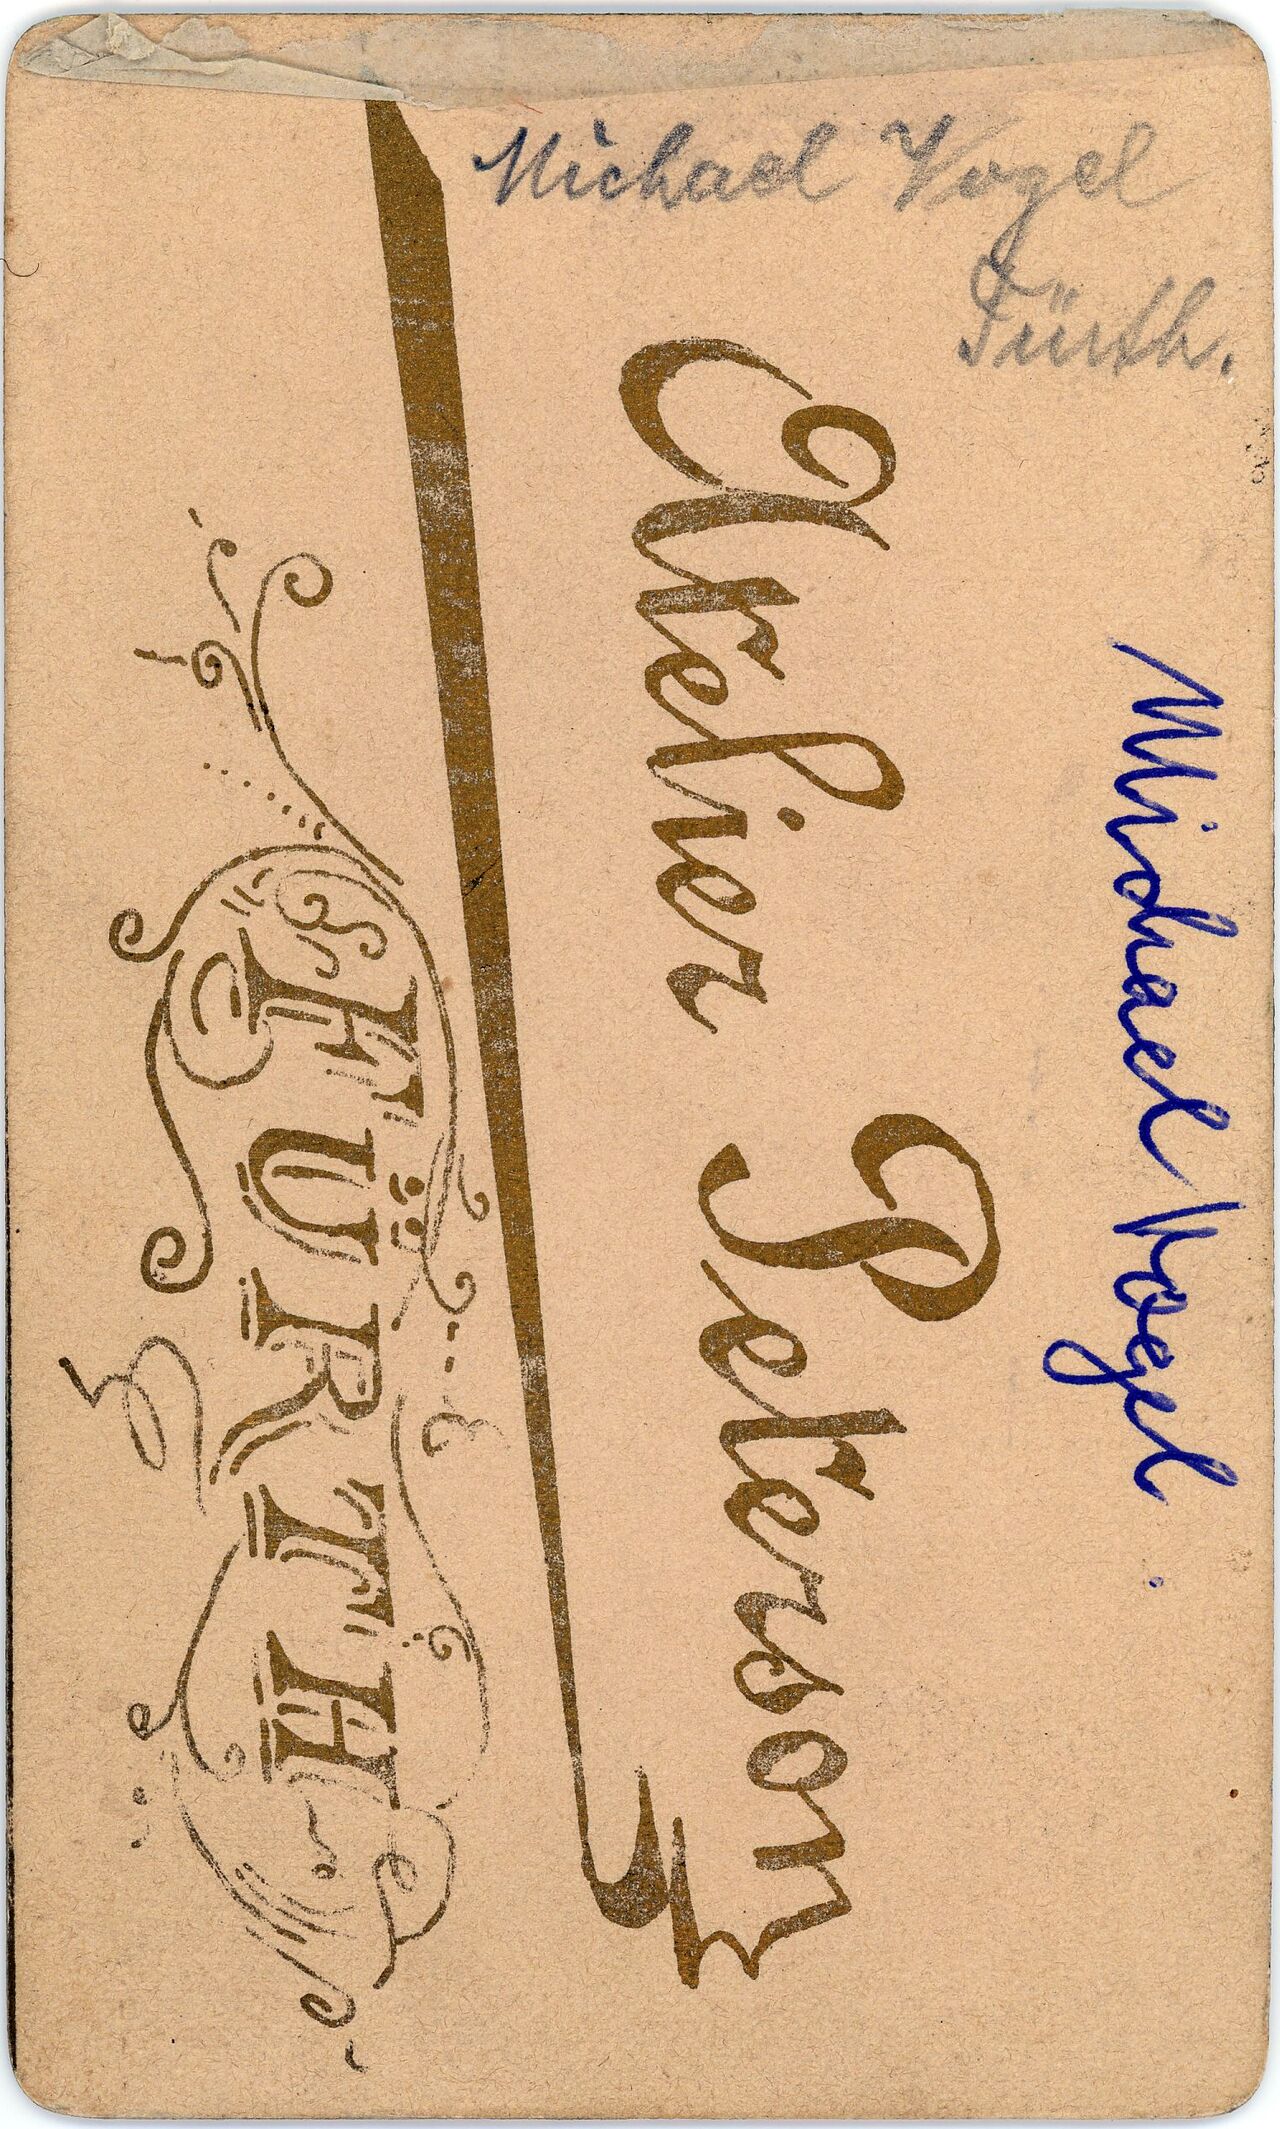 Michael Vogel
Fürth.
Michael Vogel
Atelier Peterson
FÜRTH